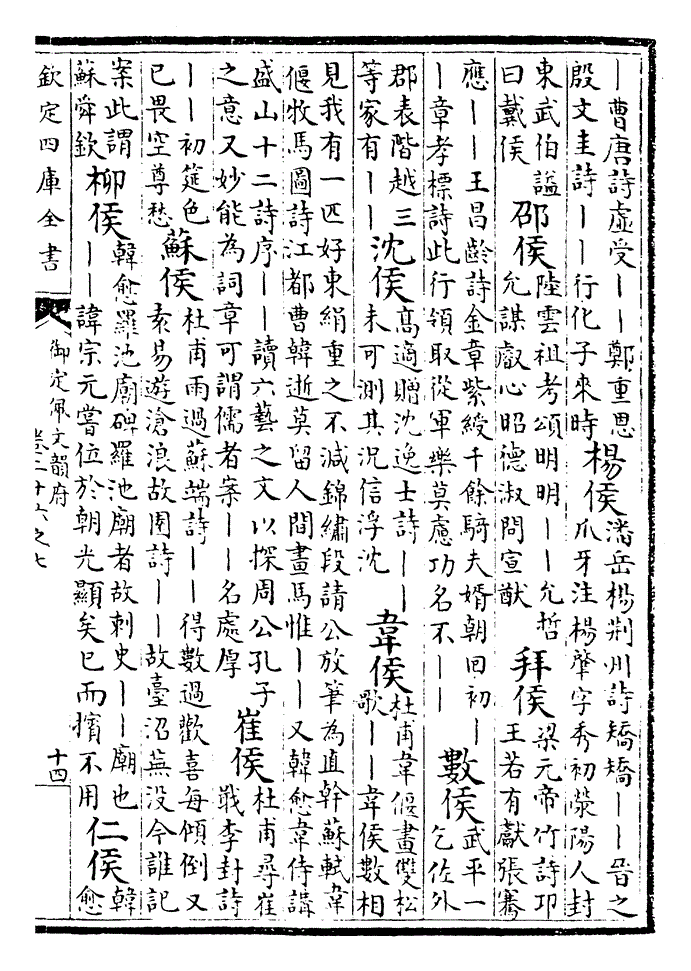 丨曹唐詩虛受丨丨鄭重思
殷文圭詩丨丨行化子來時
楊侯
潘岳楊荆州詩矯矯丨丨晉之
爪牙注楊肇字秀初滎陽人封
東武伯謚
曰戴侯
邵侯
陸雲祖考頌明明丨丨允哲
允謀叡心昭德淑問宣猷
拜侯
梁元帝竹詩卭
王若有獻張騫
應丨丨王昌齡詩金章紫綬千餘騎夫婿朝回初丨
丨章孝標詩此行領取從軍樂莫慮功名不丨丨
數侯
武平一
乞佐外
郡表階越三
等家有丨丨
沈侯
高適贈沈逸士詩丨丨
未可測其況信浮沈
韋侯
杜甫韋偃畫雙松
歌丨丨韋侯數相
見我有一匹好東絹重之不減錦繡段請公放筆為直幹蘇軾韋
偃牧馬圖詩江都曹韓逝莫留人間畫馬惟丨丨又韓愈韋侍講
盛山十二詩序丨丨讀六藝之文以探周公孔子
之意又妙能為詞章可謂儒者案丨丨名處厚
崔侯
杜甫尋崔
戢李封詩
丨丨初筵色
已畏空尊愁
蘇侯
杜甫雨過蘇端詩丨丨得數過歡喜每傾倒又
袁易遊滄浪故園詩丨丨故臺沼蕪没今誰記
案此謂
蘇舜欽
柳侯
韓愈羅池廟碑羅池廟者故刺史丨丨廟也
丨丨諱宗元嘗位於朝光顯矣已而擯不用
仁侯
韓
愈
欽定四庫全書
御定佩文韻府
卷二十六之七
十四